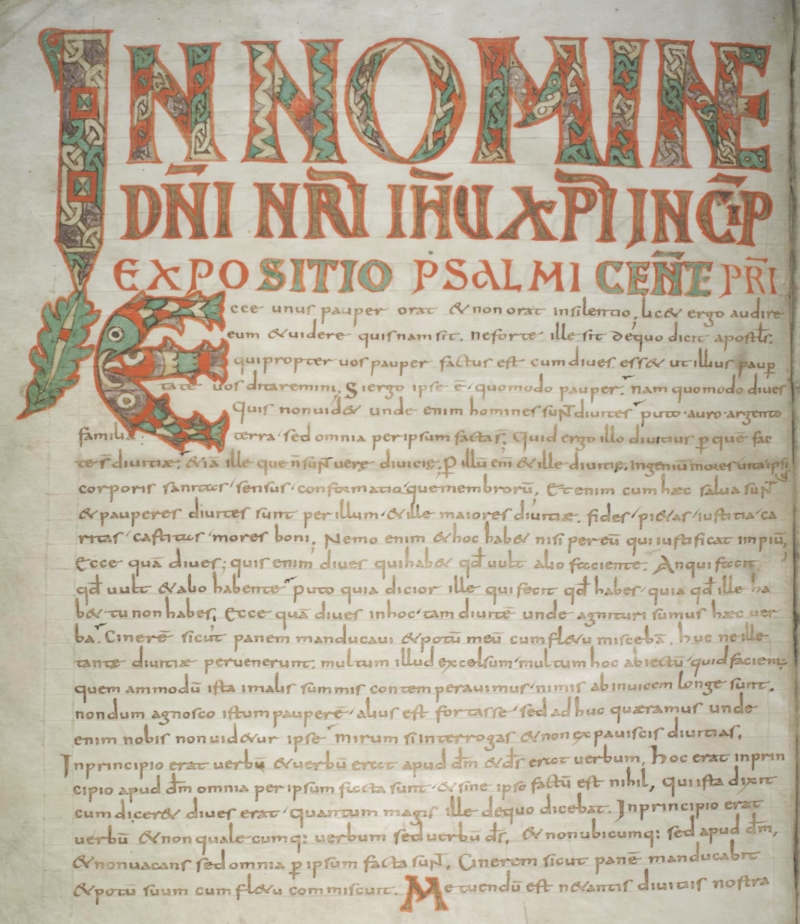 IN NOMINE
DN̄I NR̄I IH̄U XP̄I INCIP̄
EXPOSITIO PSALMI CENT̄E PRĪ
Ecce unus pauper orat & non orat insilentio, lic& ergo audire
eum & videre quisnam sit. neforte ille sit dequo dicit apostl̄s.
qui propter vos pauper factus est cum dives ess& ut illius paup
tate vos ditaremini, Siergo ipse ē quomodo pauper. nam quomodo dives
quis nonvid& unde enim homines sun̄ divites puto auro argento
familia. terra sed omnia peripsum facta s̄. Quid ergo illo divitius p quē fac
te s̄ divitiæ. & iā ille que n̄ sun̄ vere divicię. P illū em̄ & ille divitię. ingenium mores vita ipsi
corporis sanitas sensus conformatioque membrorū. Et enim cum hæc salva sun̄
& pauperes divites sunt per illum & ille maiores divitiæ. fides pi&as iustitia ca
ritas castitas mores boni, Nemo enim & hoc hab& nisi per eū qui iustificat impiū,
Ecce quā dives; quis enim dives qui hab& qd̄ vult alio faciente. An qui facit
qd̄ vult & alio habente puto quia dicior ille qui fecit qd̄ habes quia qd̄ ille ha
b& tu non habes, Ecce quā dives inhoc tam divitē unde agnituri sumus hæc ver
ba. Cinerē sicut panem manducavi & potū meū cum fl&u miscebā. huc ne ille
tante divitiæ pervenerunt. multum illud excelsum multum hoc abiectū quid faciem;
quem ammodū ista imalis summis contemperavimus nimis abinvicem longe sunt.
nondum agnosco istum pauperē alius est fortasse sed ad huc quæramus unde
enim nobis nonvid&ur ipse mirum si interrogas & non expaviscis divitias.
Inprincipio erat verbū & verbū erat apud dm̄ & ds̄ erat verbum, hoc erat inprin
cipio apud dm̄ omnia per ipsum facta sunt & sine ipso factū est nihil, qui ista dixit
cum dicer& dives erat quantum magis ille dequo dicebat. Inprincipio erat
verbū & non qualecumq: verbum sed verbū ds̄. & non ubicumq: sed apud dm̄,
& nonvacans sed omnia p ipsum facta sun̄. Cinerem sicut panē manducabit
& potū suum cum fl&u commiscuit. Metuendū est n& antis divitiis nostra